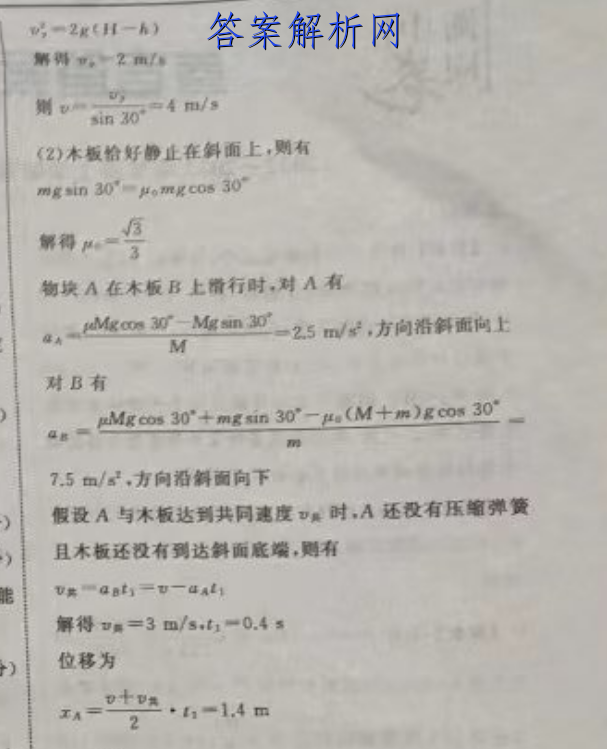 答案解析网
v_y²=2g(H-h)
解得 v_y=2 m/s
则 v=v_y/sin 30°=4 m/s
(2)木板恰好静止在斜面上,则有
mgsin 30°=μ₀mgcos 30°
解得 μ₀=√3/3
物块 A 在木板 B 上滑行时,对 A 有
a_A=(μMgcos 30°-Mgsin 30°)/M=2.5 m/s²,方向沿斜面向上
对 B 有
a_B=(μMgcos 30°+mgsin 30°-μ₀(M+m)gcos 30°)/m=
7.5 m/s²,方向沿斜面向下
假设 A 与木板达到共同速度 v共 时,A 还没有压缩弹簧
且木板还没有到达斜面底端,则有
v共=a_Bt₁=v-a_At₁
解得 v共=3 m/s,t₁=0.4 s
位移为
x_A=(v+v共)/2·t₁=1.4 m